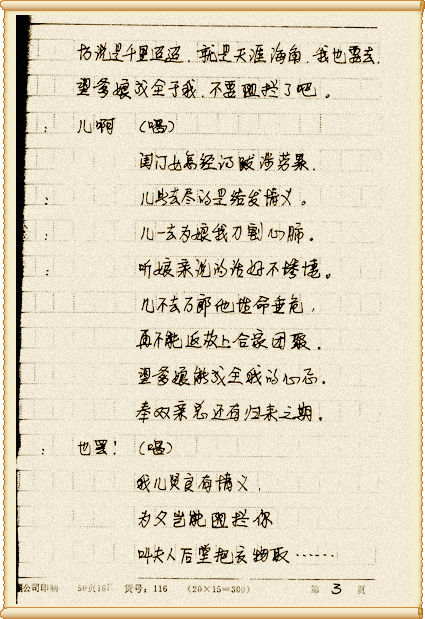 说是千里迢迢,就是天涯海角,我也要去,
望爹娘成全于我,不要阻拦了吧。
: 儿啊 (唱)
: 儿此去尽的是结发情义。
: 儿一去为娘我刀割心肺。
: 听娘亲说的话好不惨
儿不去万郎他性命垂危,
再不能返故土合家团聚。
望爹娘能成全我的心
奉双亲总还有归来之期。
: 也罢! (唱)
我儿贤良有情义,
为父岂能阻拦你
叫夫人后堂把衣物取……
公司印 50页 货号:116 (20×15=300) 第 3 页